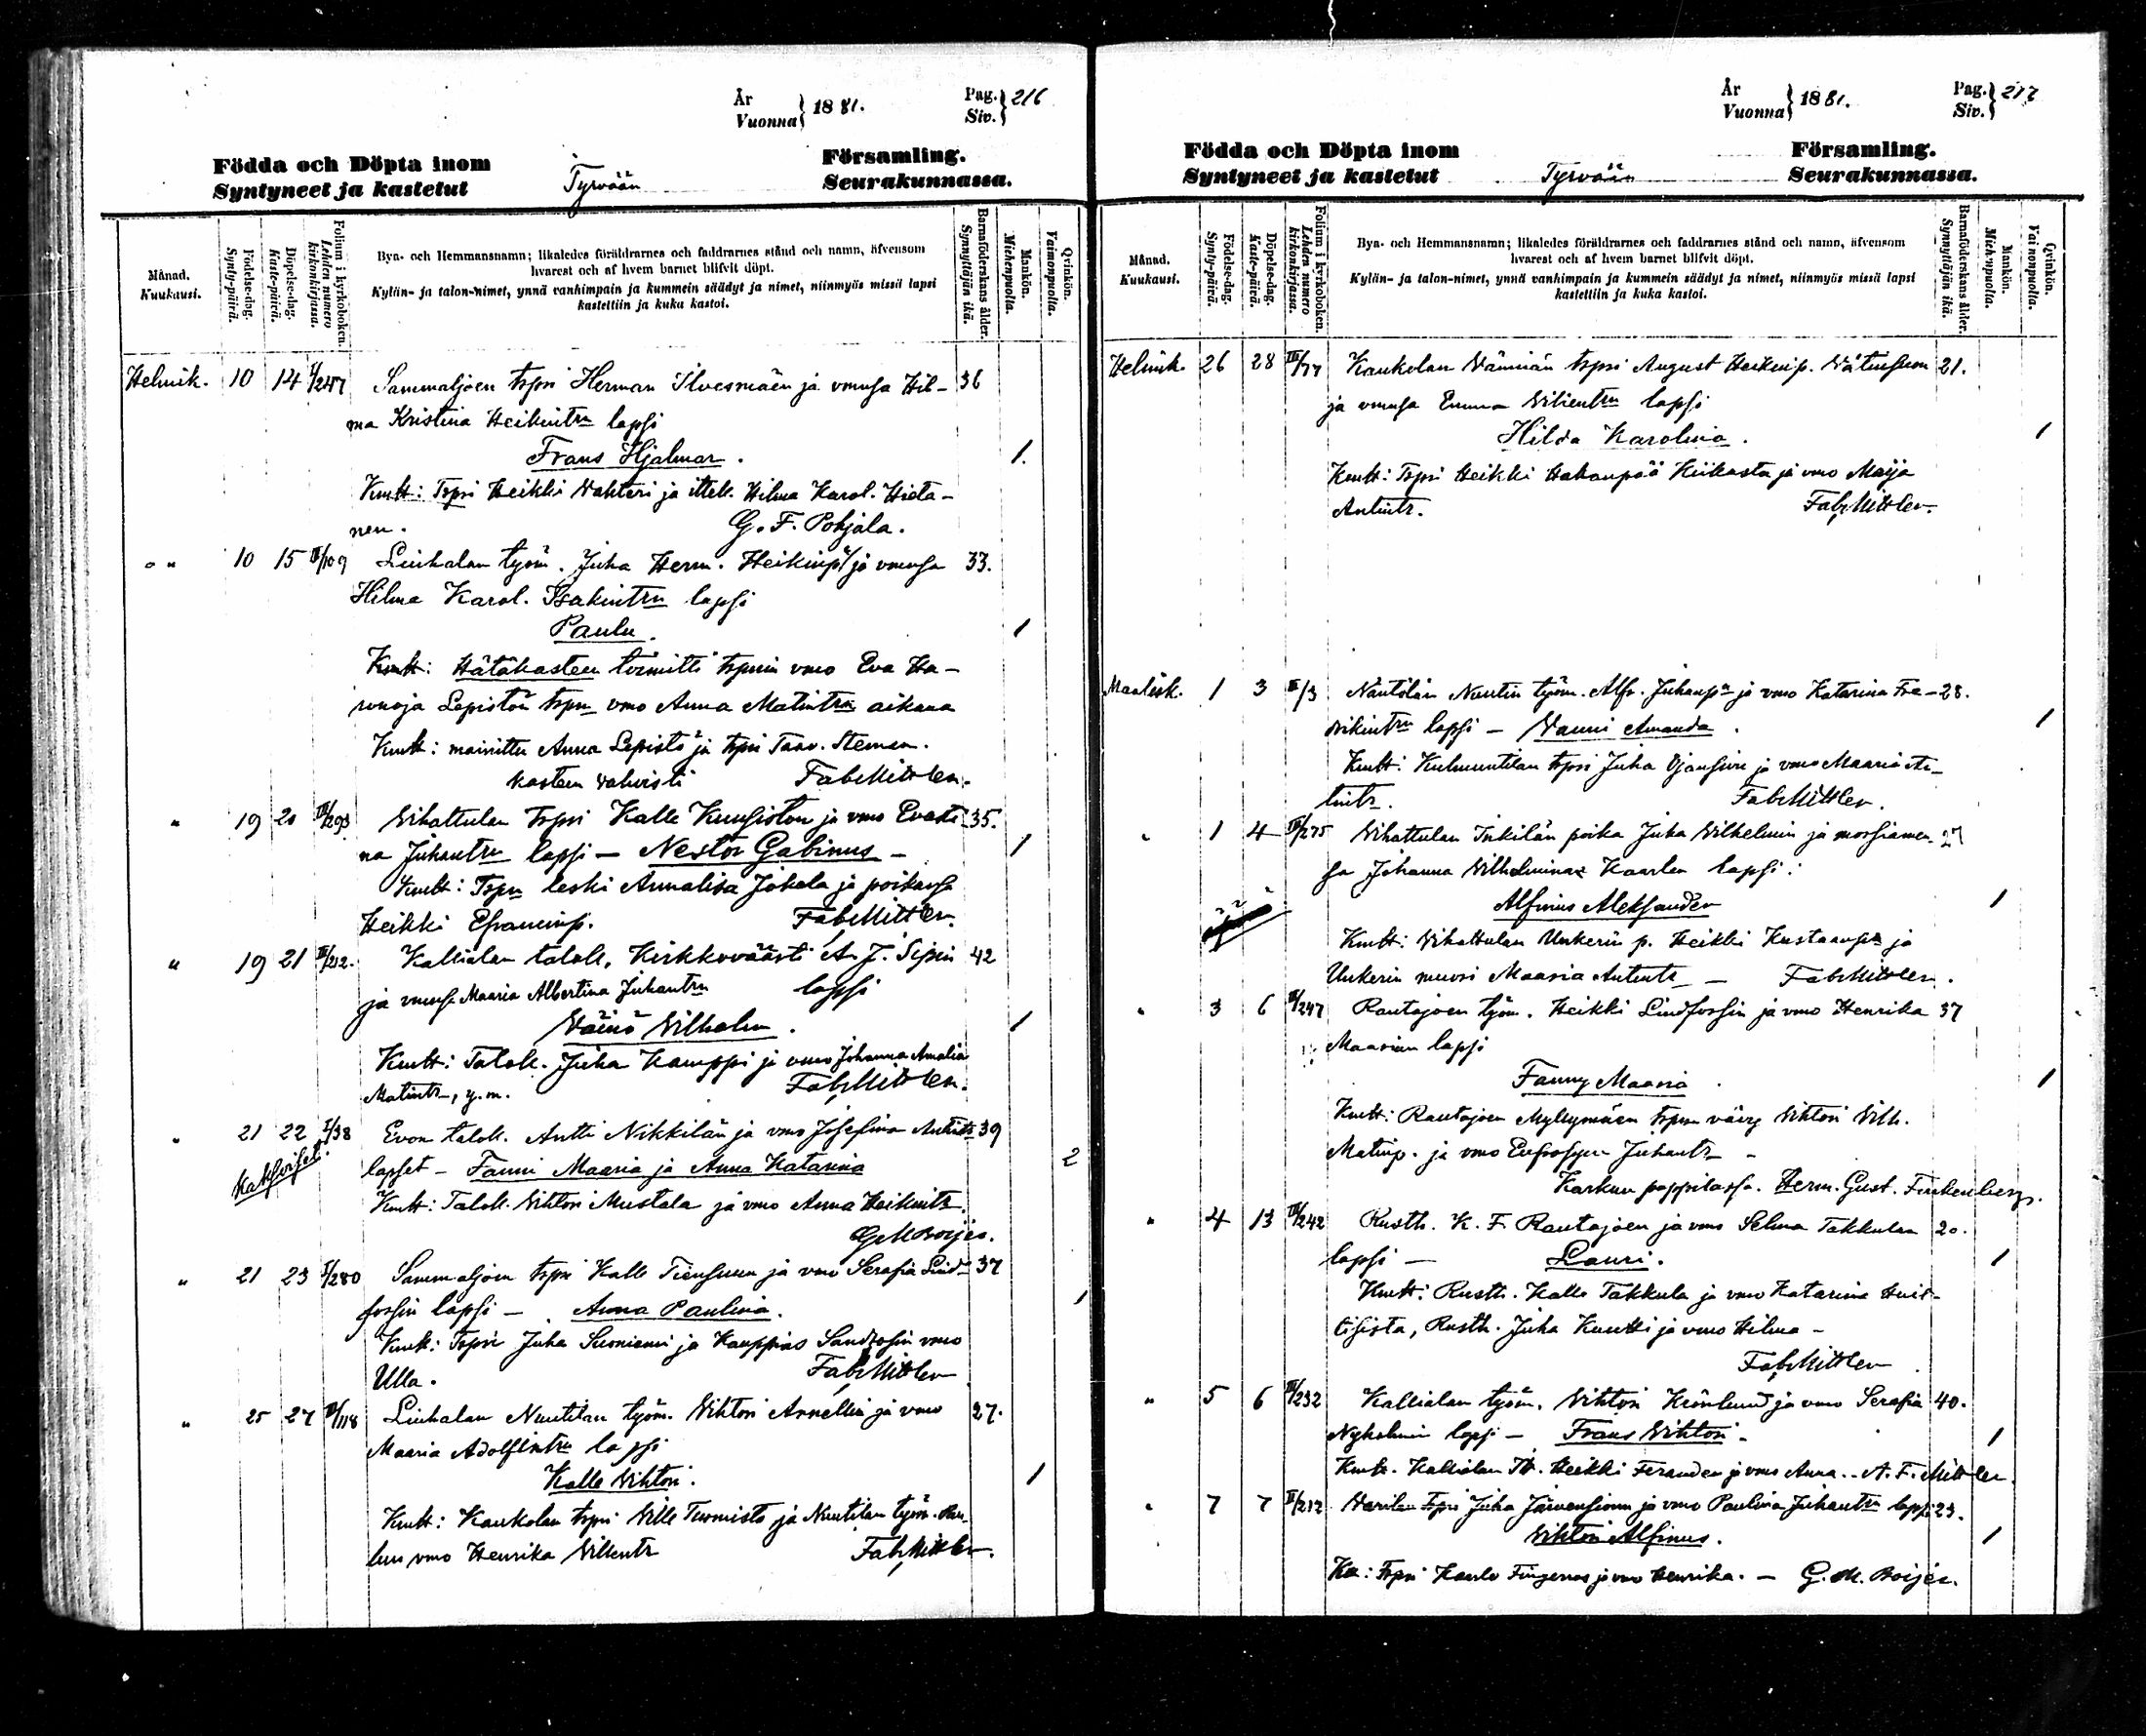 År
Vuonna } 1881.
Pag.
Siv. } 216
Födda och Döpta inom
Församling.
Syntyneet ja kastetut
Tyrvään
Seurakunnassa.
Månad.
Kuukausi.
Födelse-dag.
Synty-päivä.
Döpelse-dag.
Kaste-päivä.
Folium i kyrkoboken.
Lehden numero
kirkonkirjassa.
Bya- och Hemmansnamn; likaledes föräldrarnes och faddrarnes stånd och namn, äfvensom
hvarest och af hvem barnet blifvit döpt.
Kylän- ja talon-nimet, ynnä vanhimpain ja kummein säädyt ja nimet, niinmyös missä lapsi
kastettiin ja kuka kastoi.
Barnaföderskans ålder.
Synnyttäjän ikä.
Mankön.
Miehenpuolta.
Qvinkön.
Vaimonpuolta.
Helmik. 10 14 Sammaljoen tspri Herman Ilvesmäen ja vmnsa Hil- 36
ma Kristina Heikintrn lapsi
Frans Hjalmar. 1.
Kmtt: Tspri Heikki Vahteri ja ittell. Hilma Karol. Hieta-
nen. G. F. Pohjala.
" 10 15 III/109 Liuhalan työm. Juha Herm. Heikinp. ja vmnsa 33.
Hilma Karol. Isakintrn lapsi
Paulu. 1
Kmtt: Hätäkasteen toimitti tsprin vmo Eva Ha-
runoja Lepistön tsprn vmo Anna Matintrn aikana
Kmtt: mainittu Anna Lepistö ja tspri Taav. Steman.
kasteen vahvisti Fab. Mittler.
" 19 20 III/293 Vihattulan tspri Kalle Kuusiston ja vmo Evasti- 35.
na Juhantrn lapsi — Nestor Gabinus — 1
Kmtt: Tsprn leski Annaliisa Jokela ja poikansa
Heikki Efraiminp. Fab. Mittler.
" 19 21 II/212. Kallialan taloll. Kirkkoväärti A. J. Sipin 42
ja vmnsa Maaria Albertina Juhantrn lapsi
Väinö Vilhelm. 1
Kmtt: Taloll. Juha Kamppi ja vmo Johanna Amalia
Matintr, y. m. Fab. Mittler.
" 21 22 I/38 Evon taloll. Antti Nikkilän ja vmo Josefina Antintr 39
Kaksoiset.
lapset — Fanni Maaria ja Anna Katarina 2
Kmtt: Taloll. Vihtori Mustala ja vmo Anna Heikintr.
G. M. Boijer.
" 21 23 I/280 Sammaljoen tspri Kalle Tiensuun ja vmo Serafia Lind- 37
forssin lapsi — Anna Paulina. 1
Kmtt: Tspri Juha Suoniemi ja Kauppias Sandrosin vmo
Ulla. Fab. Mittler
" 25 27 III/118 Liuhalan Nuutilan työm. Vihtori Annellin ja vmo 27.
Maaria Adolfintrn lapsi
Kalle Vihtori. 1
Kmtt: Kaukolan tspri Ville Tuomisto ja Nuutilan työm. Pau-
lun vmo Henrika Villentr Fab. Mittler.
År
Vuonna } 1881.
Pag.
Siv. } 217
Födda och Döpta inom
Församling.
Syntyneet ja kastetut
Tyrvään
Seurakunnassa.
Månad.
Kuukausi.
Födelse-dag.
Synty-päivä.
Döpelse-dag.
Kaste-päivä.
Folium i kyrkoboken.
Lehden numero
kirkonkirjassa.
Bya- och Hemmansnamn; likaledes föräldrarnes och faddrarnes stånd och namn, äfvensom
hvarest och af hvem barnet blifvit döpt.
Kylän- ja talon-nimet, ynnä vanhimpain ja kummein säädyt ja nimet, niinmyös missä lapsi
kastettiin ja kuka kastoi.
Barnaföderskans ålder.
Synnyttäjän ikä.
Mankön.
Miehenpuolta.
Qvinkön.
Vaimonpuolta.
Helmik. 26 28 III/77 Kaukolan Vänniän tspri August Heikinp. 21.
ja vmnsa Emma Vilientrn lapsi
Hilda Karolina. 1
Kmtt: Tspri Heikki Hakanpää Kiikasta ja vmo Maija
Antintr. Fab. Mittler.
Maalisk. 1 3 II/3 Näntölän Nuutin työm. Alfr. Juhanpn ja vmo Katarina Fre- 28.
drikintrn lapsi — Vanni Amanda. 1
Kmtt: Kulmuntilan tspri Juha Ojansivu ja vmo Maaria An-
tintr. Fab. Mittler.
" 1 4 III/275 Vihattulan Inkilän poika Juha Vilhelmin ja morsiamen- 27
sa Johanna Vilhelmina Kaarlen lapsi:
Alfinus Aleksander 1
Kmtt: Vihattulan Unkerin p. Heikki Kustaanp. ja
Unkerin muori Maaria Antintr — Fab. Mittler.
" 3 6 II/247 Rautajoen työm. Heikki Lindforssin ja vmo Henrika 37
Maarian lapsi
Fanny Maaria. 1
Kmtt: Rautajoen Myllymäen tsprn vävy Vihtori Vilh.
Matinp. ja vmo Eufrosyne Juhantr —
Karkun pappilassa. Herm. Gust. Finkenberg.
" 4 13 III/242 Rusth. K. F. Rautajoen ja vmo Selma Takkulan 20.
lapsi — Lauri. 1
Kmtt: Rusth. Kalle Takkula ja vmo Katarina Huit-
tisista, Rusth. Juha Kuutti ja vmo Hilma —
Fab. Mittler.
" 5 6 II/232 Kallialan työm. Vihtori Krönlund ja vmo Serafia 40.
Nyholmin lapsi — Frans Vihtori. 1
Kmtt. Kallialan Tt. Heikki Feranden ja vmo Anna. A. F. Mittler.
" 7 7 II/212 Varilan tspri Juha Järvensivun ja vmo Paulina Juhantrn lapsi 23.
Vihtori Alfinus. 1
Ku: Tspri Kaarlo Fingerroos ja vmo Henrika. — G. M. Boijer.